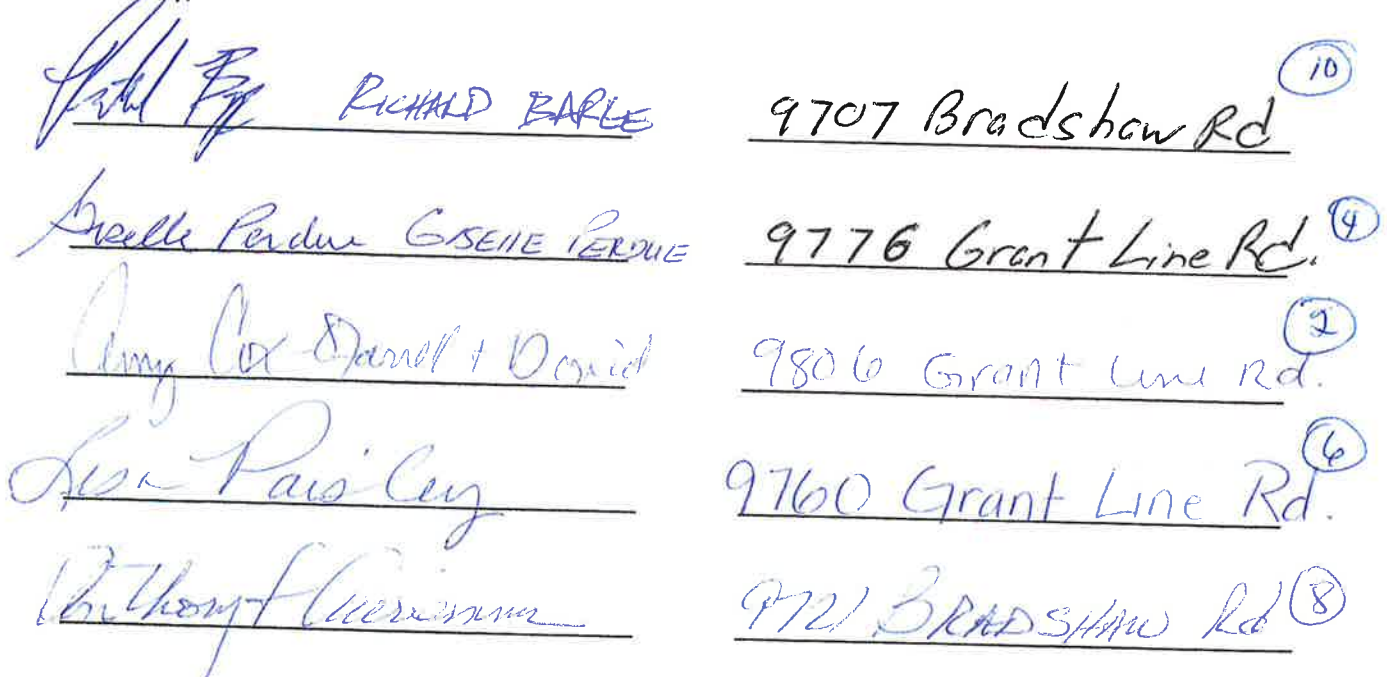 RICHARD BARLE 9707 Bradshaw Rd 10
Giselle Perdue GISELLE PERDUE 9776 Grant Line Rd. 4
Amy Cox Darrell + David 9806 Grant Line Rd. 2
Lisa Paisley 9760 Grant Line Rd. 6
Anthony F 9721 BRADSHAW Rd 8